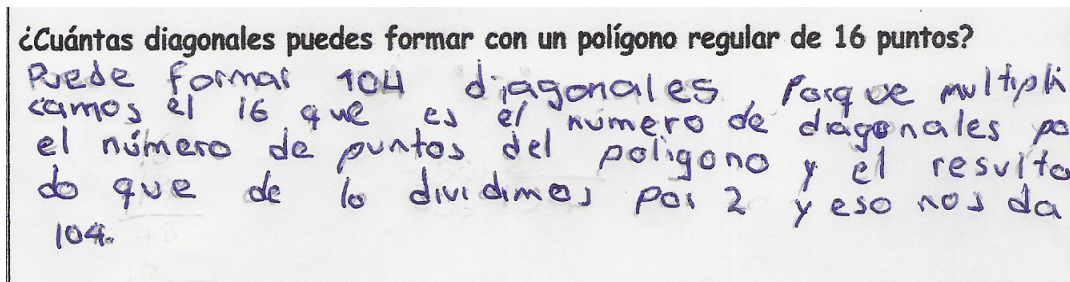 ¿Cuántas diagonales puedes formar con un polígono regular de 16 puntos?
Puede formar 104 diagonales Porque multipli
camos el 16 que es el número de diagonales po
el número de puntos del poligono y el resulta
do que de lo dividimos por 2 y eso nos da
104.